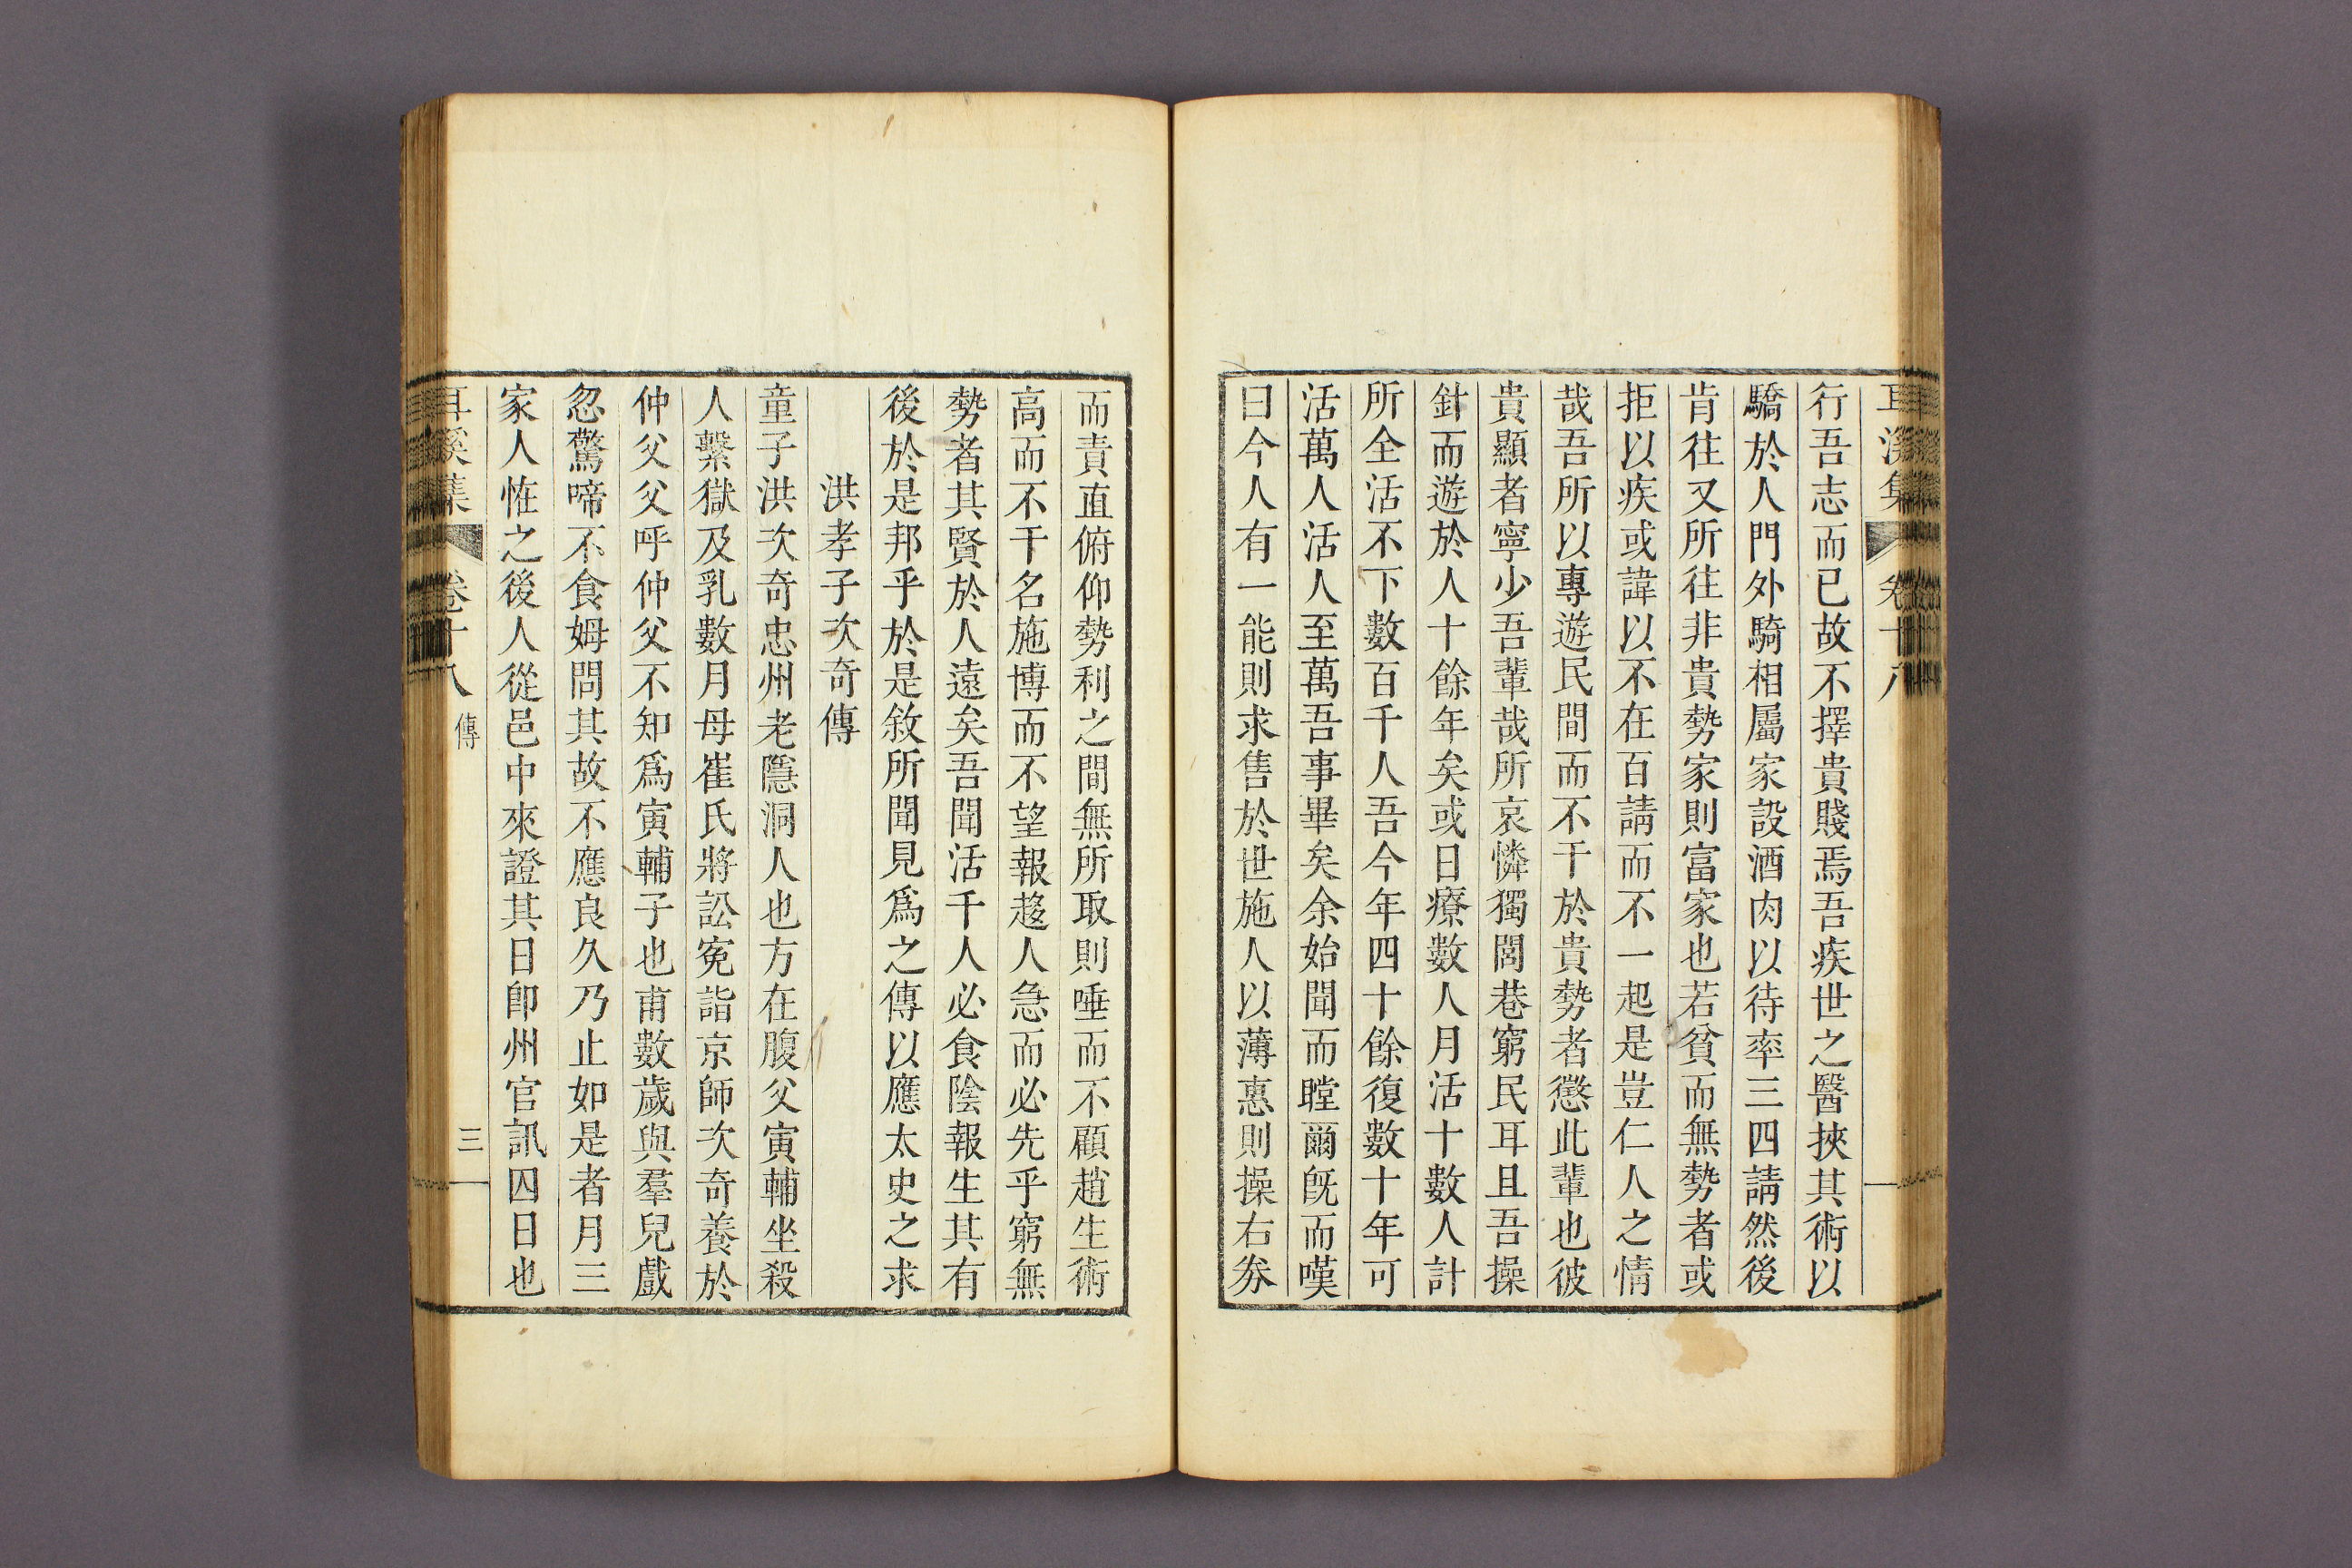 耳溪集 卷十八
行吾志而已故不擇貴賤焉吾疾世之醫挾其術以
驕於人門外騎相屬家設酒肉以待率三四請然後
肯往又所往非貴勢家則富家也若貧而無勢者或
拒以疾或諱以不在百請而不一起是豈仁人之情
哉吾所以專遊民間而不干於貴勢者懲此輩也彼
貴顯者寧少吾輩哉所哀憐獨閭巷窮民耳且吾操
針而遊於人十餘年矣或日療數人月活十數人計
所全活不下數百千人吾今年四十餘復數十年可
活萬人活人至萬吾事畢矣余始聞而瞠爾旣而嘆
曰今人有一能則求售於世施人以薄惠則操右券
而責直俯仰勢利之間無所取則唾而不顧趙生術
高而不干名施博而不望報趍人急而必先乎窮無
勢者其賢於人遠矣吾聞活千人必食陰報生其有
後於是邦乎於是敘所聞見爲之傳以應太史之求
洪孝子次奇傳
童子洪次奇忠州老隱洞人也方在腹父寅輔坐殺
人繫獄及乳數月母崔氏將訟寃詣京師次奇養於
仲父父呼仲父不知爲寅輔子也甫數歲與羣兒戲
忽驚啼不食姆問其故不應良久乃止如是者月三
家人恠之後人從邑中來證其日卽州官訊囚日也
耳溪集 卷十八 傳 三